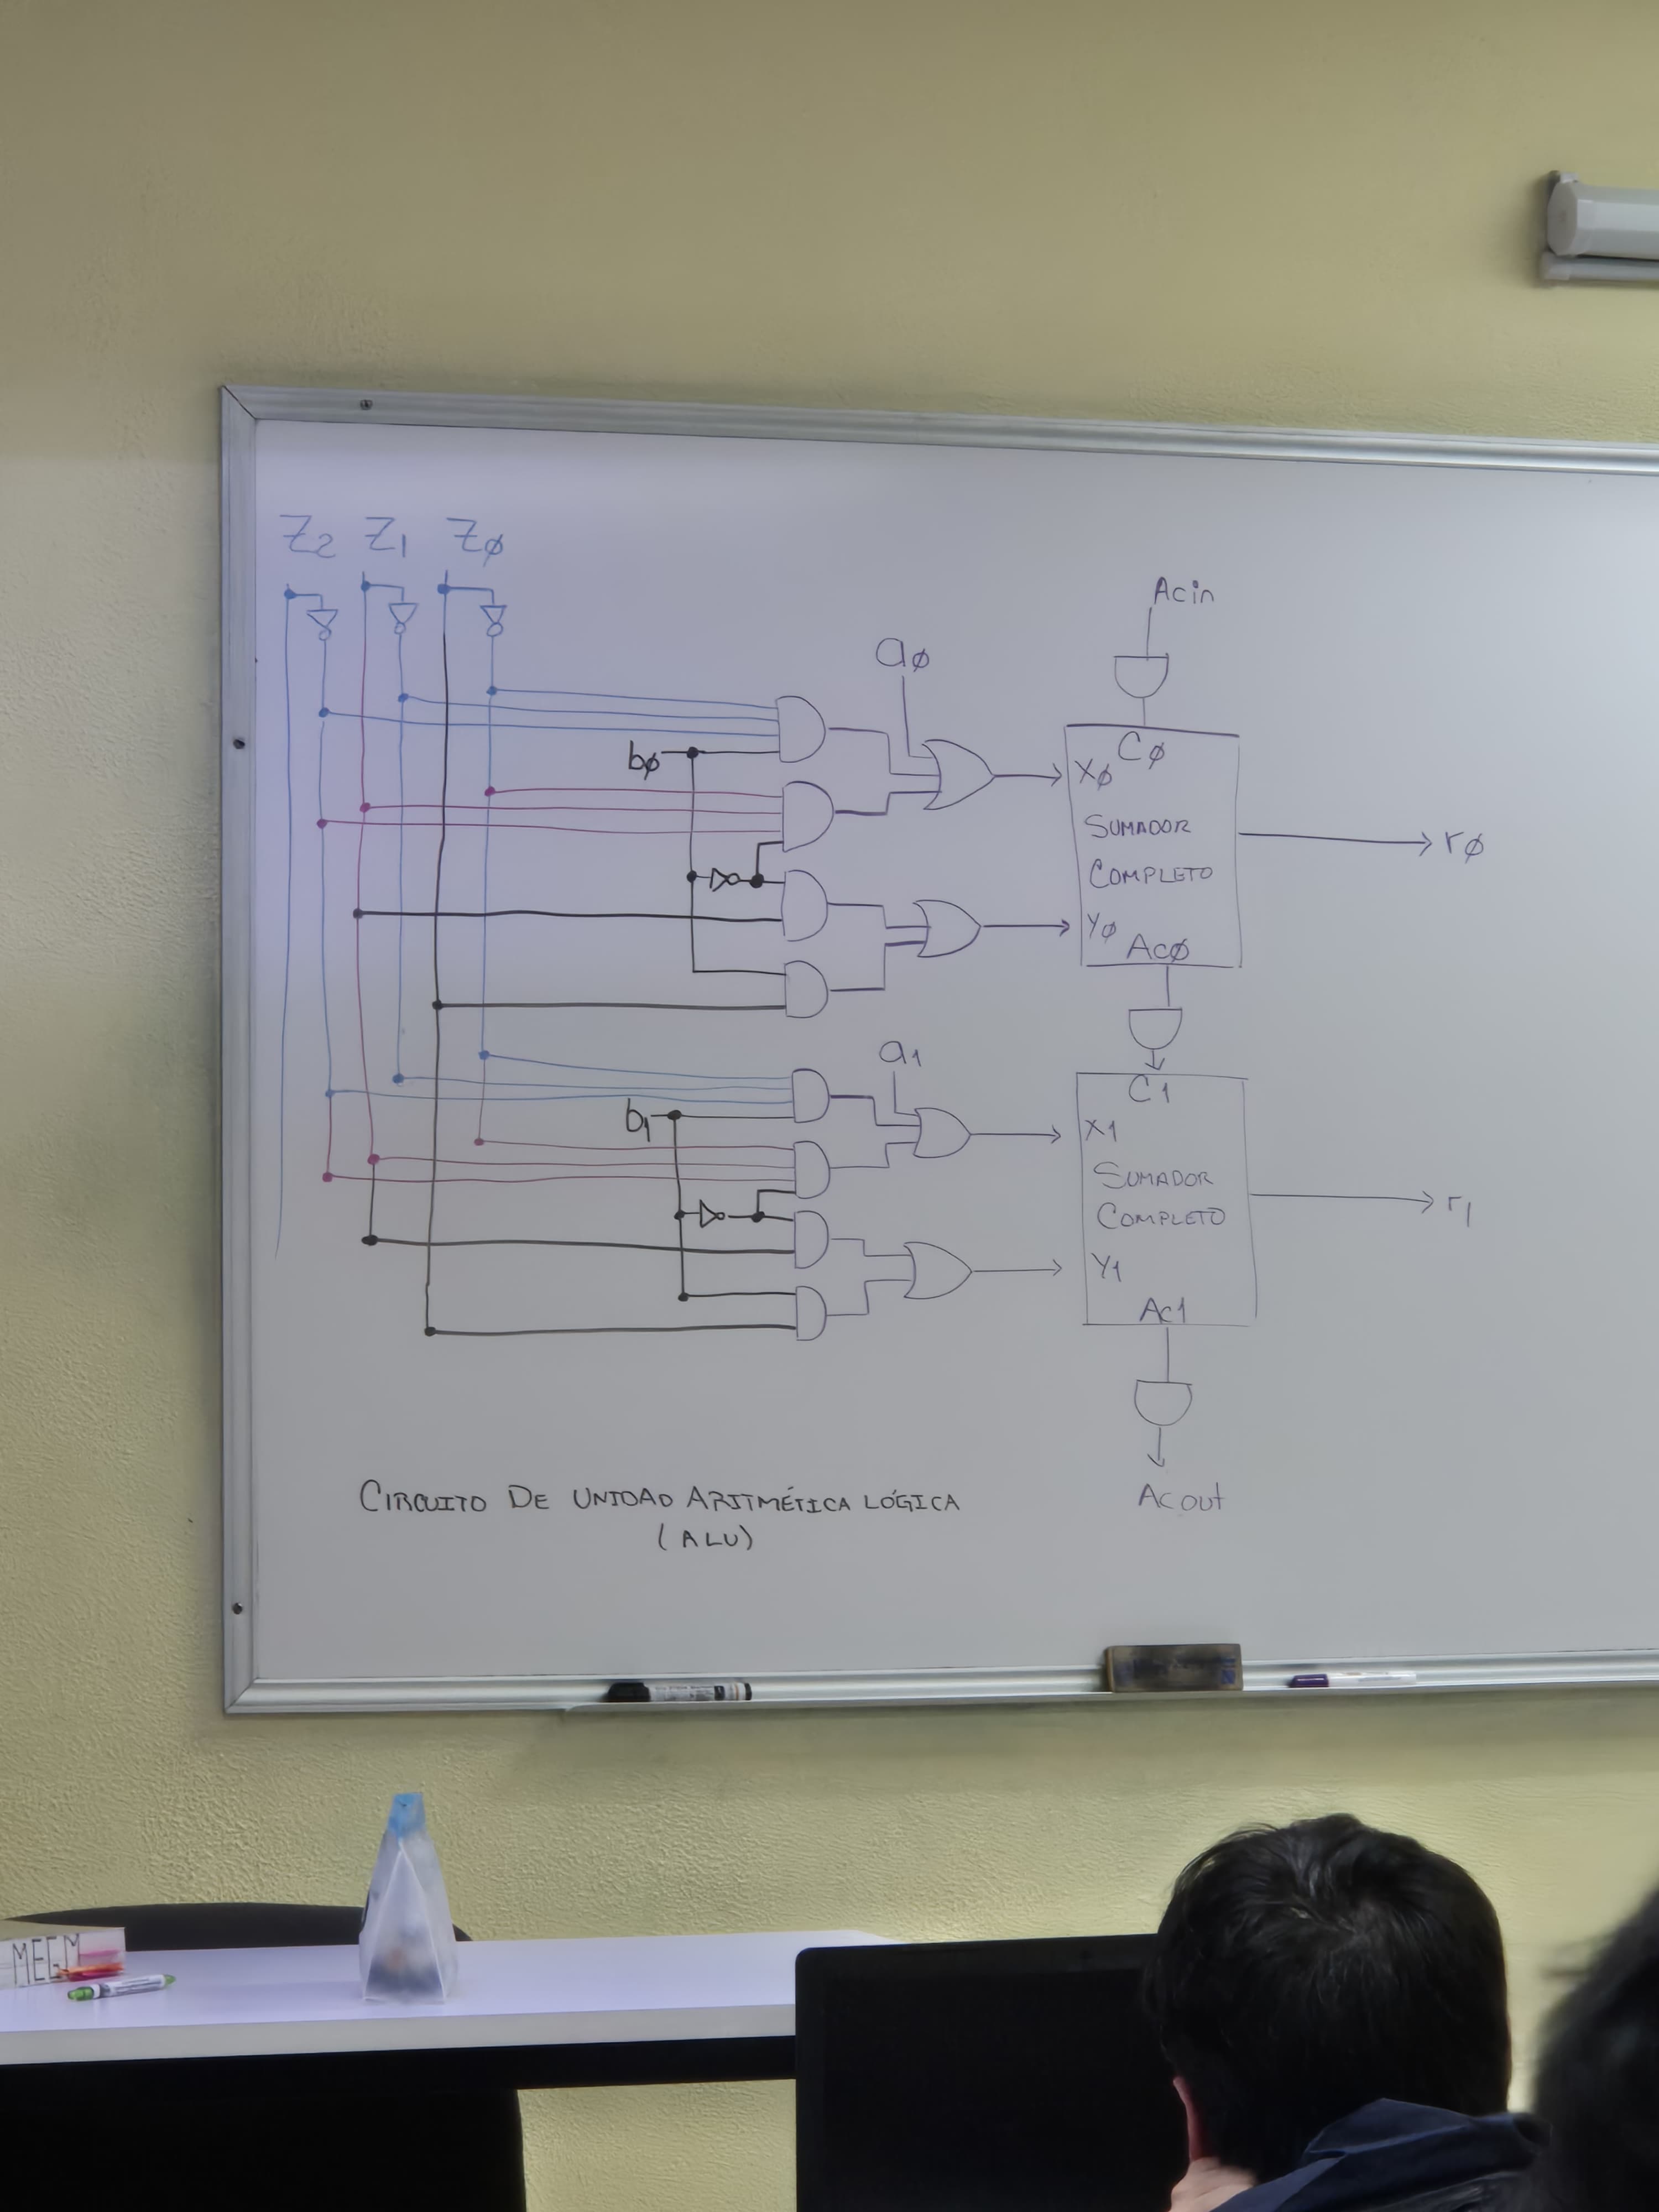 Z2 Z1 Zφ
Acin
aφ
bφ
Cφ
Xφ
SUMADOR
COMPLETO
rφ
Yφ
Acφ
a1
b1
C1
X1
SUMADOR
COMPLETO
r1
Y1
Ac1
Acout
CIRCUITO DE UNIDAD ARITMÉTICA LÓGICA
(ALU)
MEGM